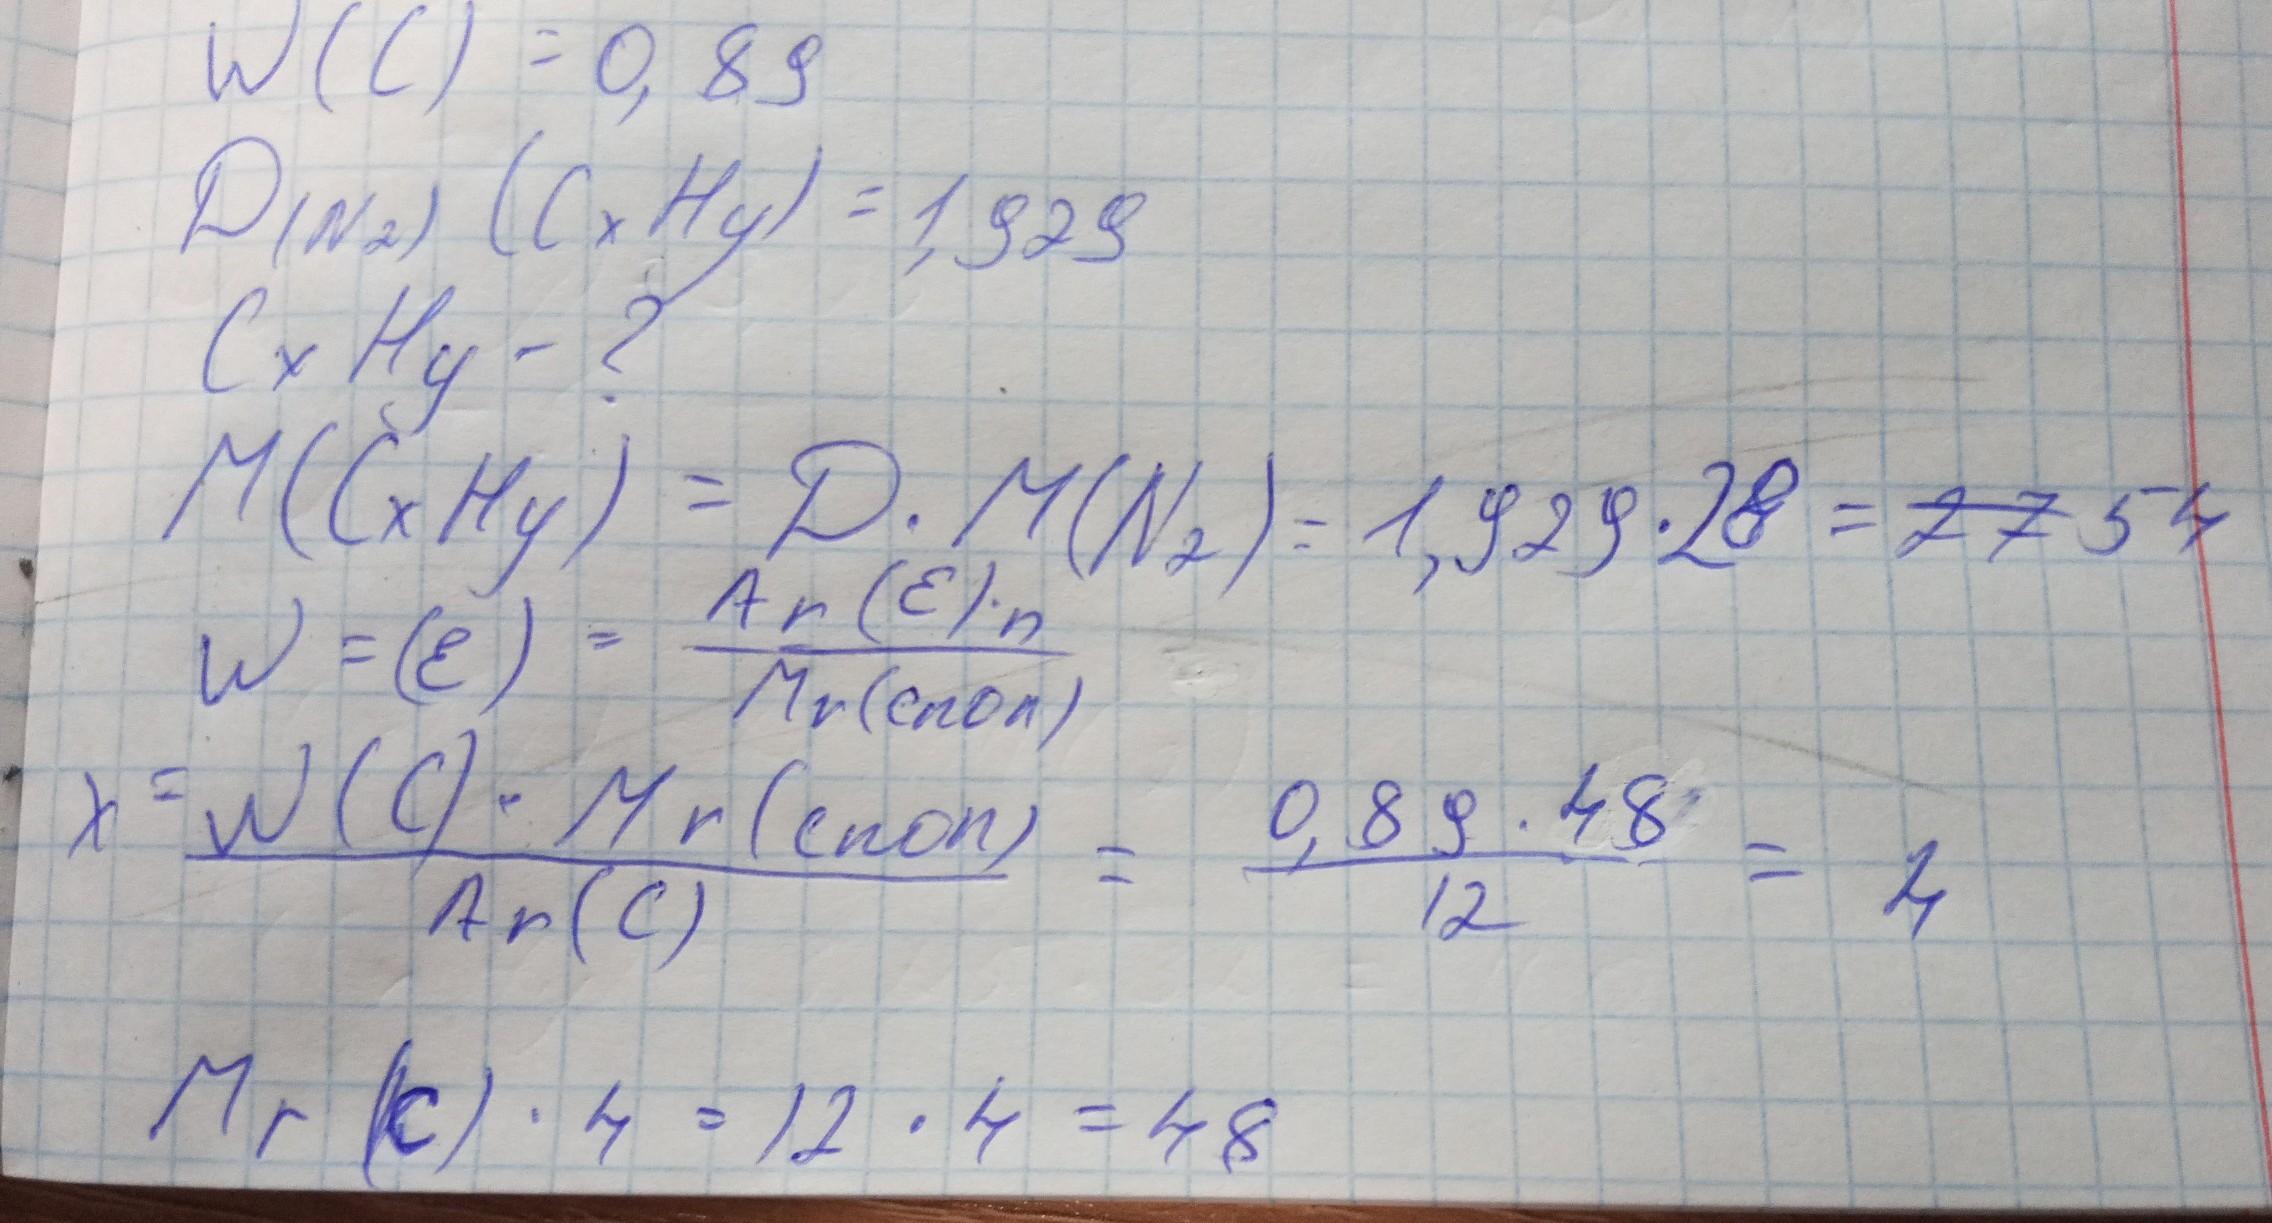 W(C) = 0,89
D(N2) (CxHy) = 1,929
CxHy - ?
M(CxHy) = D · M(N2) = 1,929 · 28 = 27 54
W = (E) = Ar(E) · n / Mr(спол)
x = W(C) · Mr(спол) / Ar(C) = 0,89 · 48 / 12 = 4
Mr(C) · 4 = 12 · 4 = 48